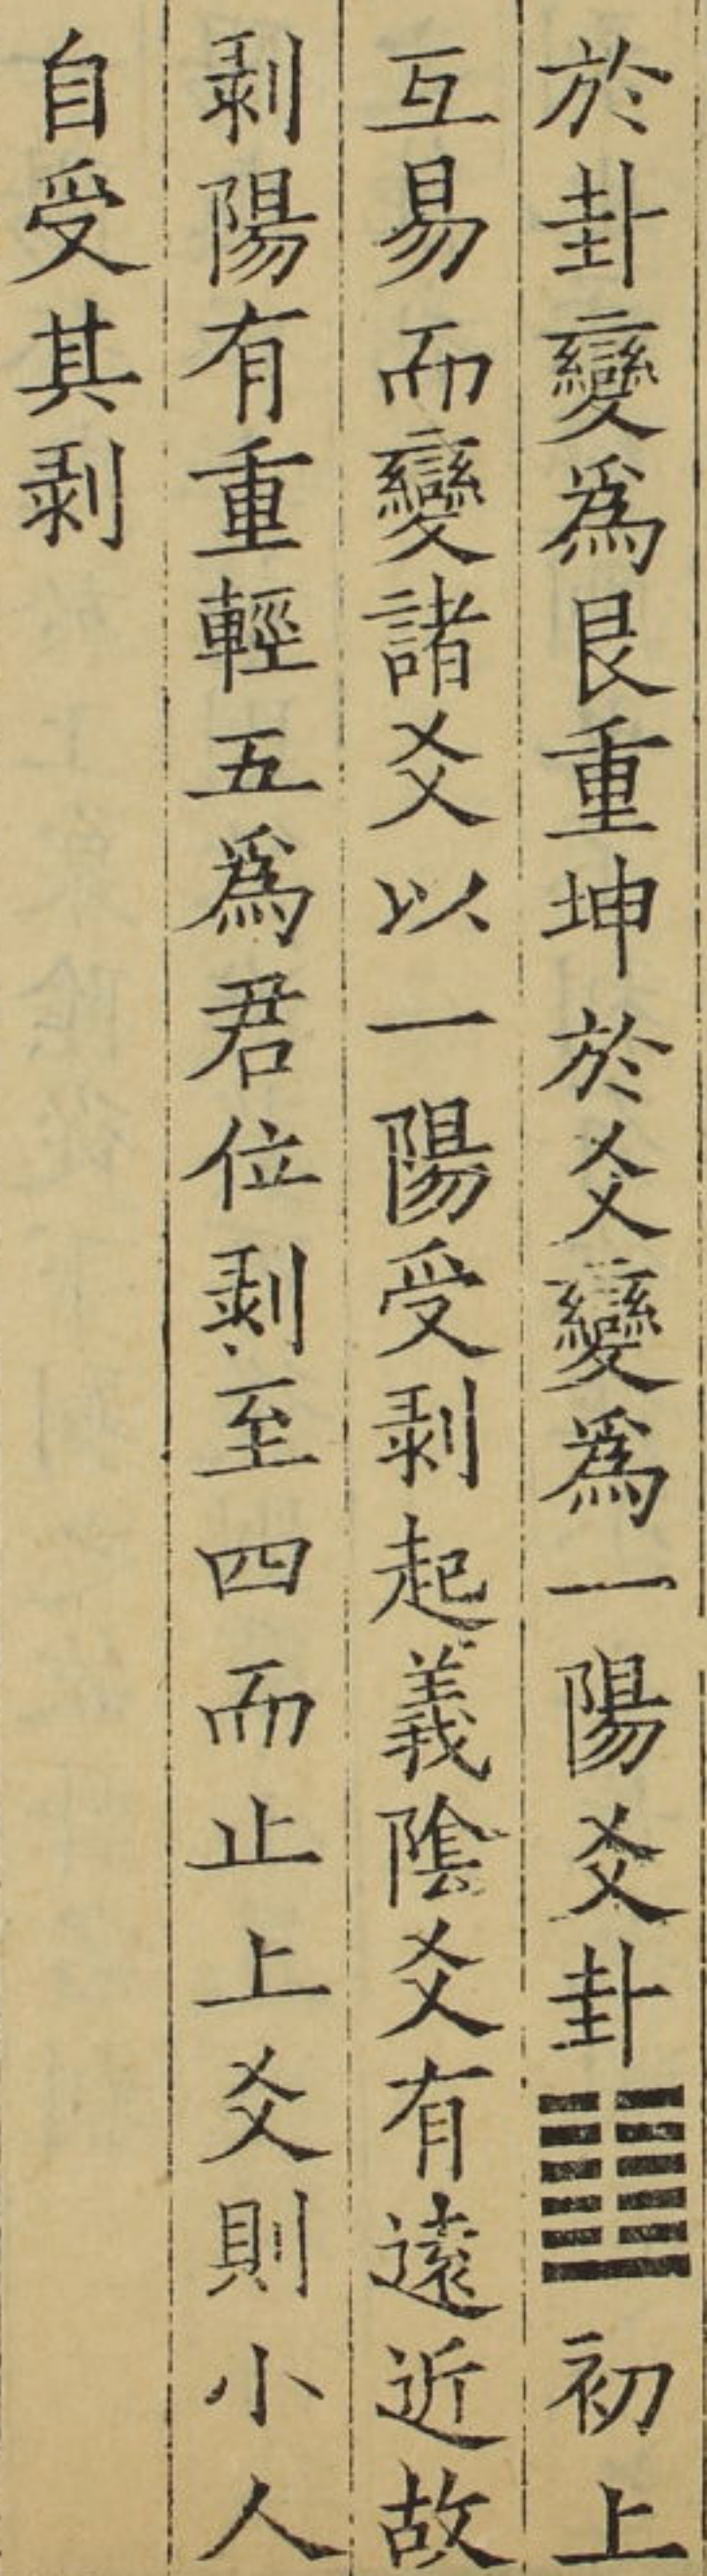 於卦變爲艮重坤於爻變爲一陽爻卦䷗初上
互易而變諸爻以一陽受剥起義陰爻有遠近故
剥陽有重輕五爲君位剥至四而止上爻則小人
自受其剥